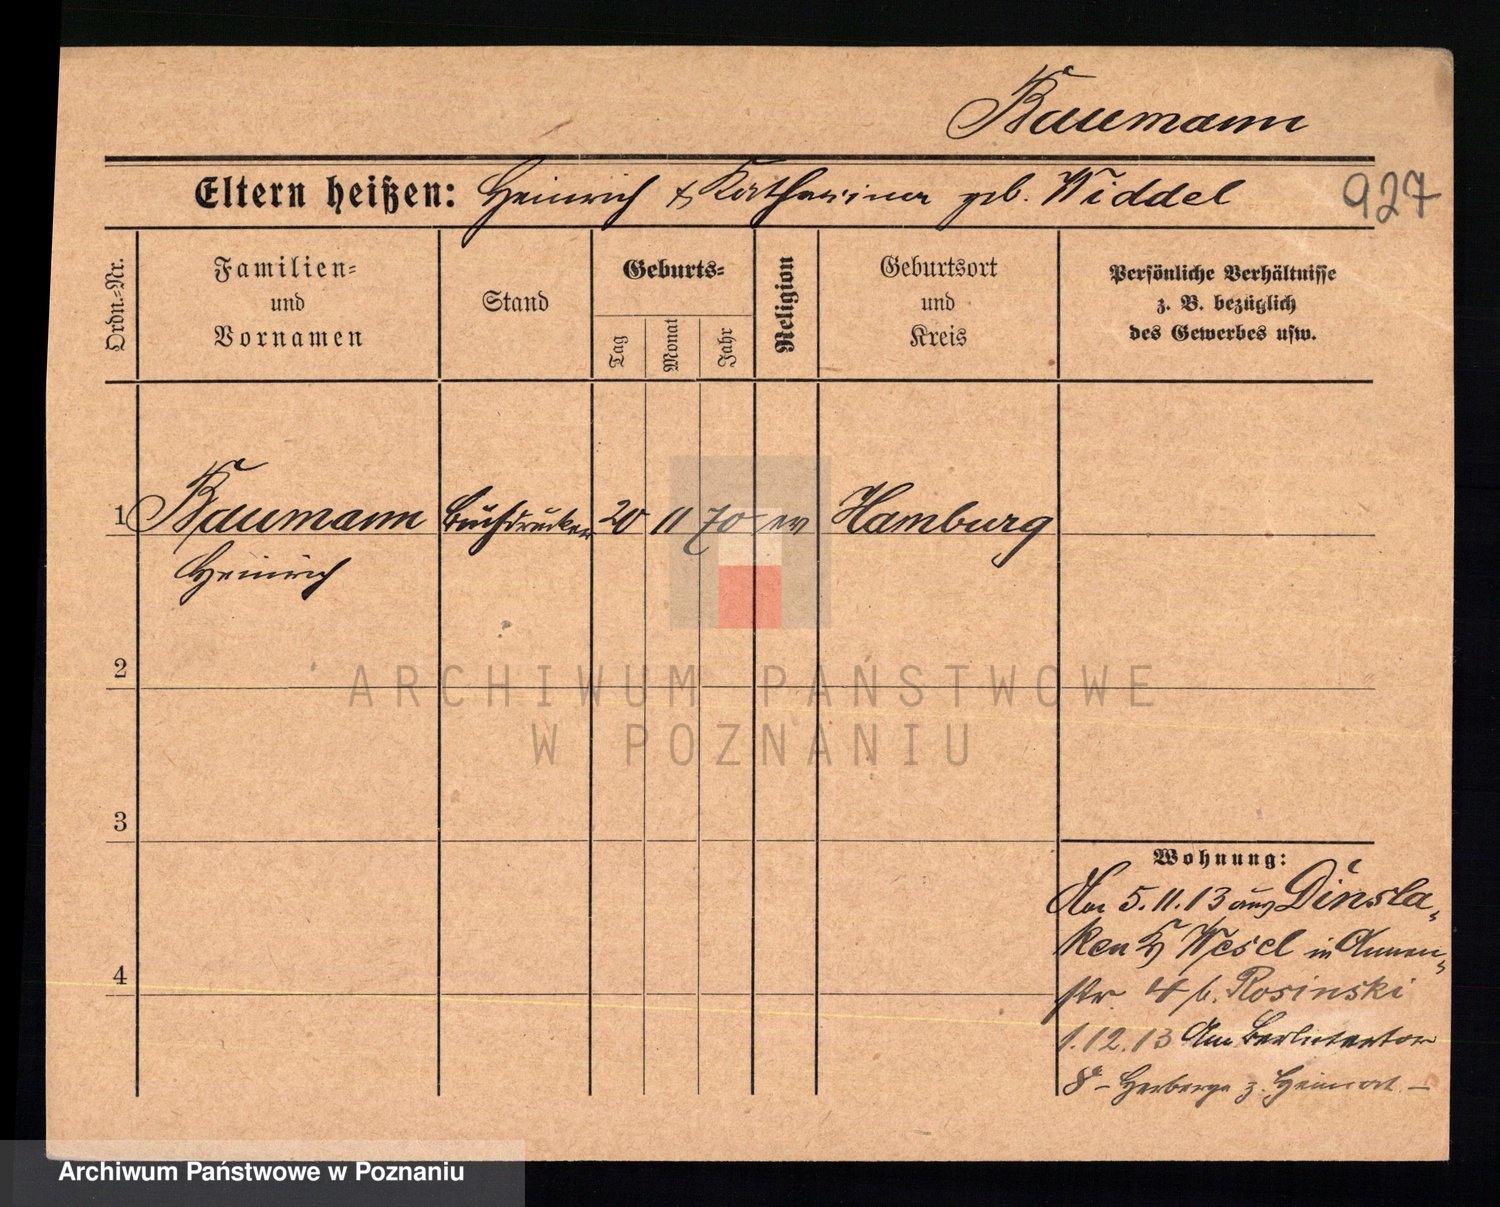 Baumann
Eltern heißen: Heinrich & Katharina geb. Widdel
927
Ordn.=Nr.
Familien=
und
Vornamen
Stand
Geburts=
Tag
Monat
Jahr
Religion
Geburtsort
und
Kreis
Persönliche Verhältnisse
z. B. bezüglich
des Gewerbes usw.
1 Baumann Buchdrucker 20 11 70 ev Hamburg
Heinrich
2
3
4
Wohnung:
5.11.13 aus Dinsla-
ken Wesel in Annen-
str 4 b. Rosinski
1.12.13 Am Berlinertor
8 – Herberge z. Heimat –
ARCHIWUM PAŃSTWOWE
W POZNANIU
Archiwum Państwowe w Poznaniu